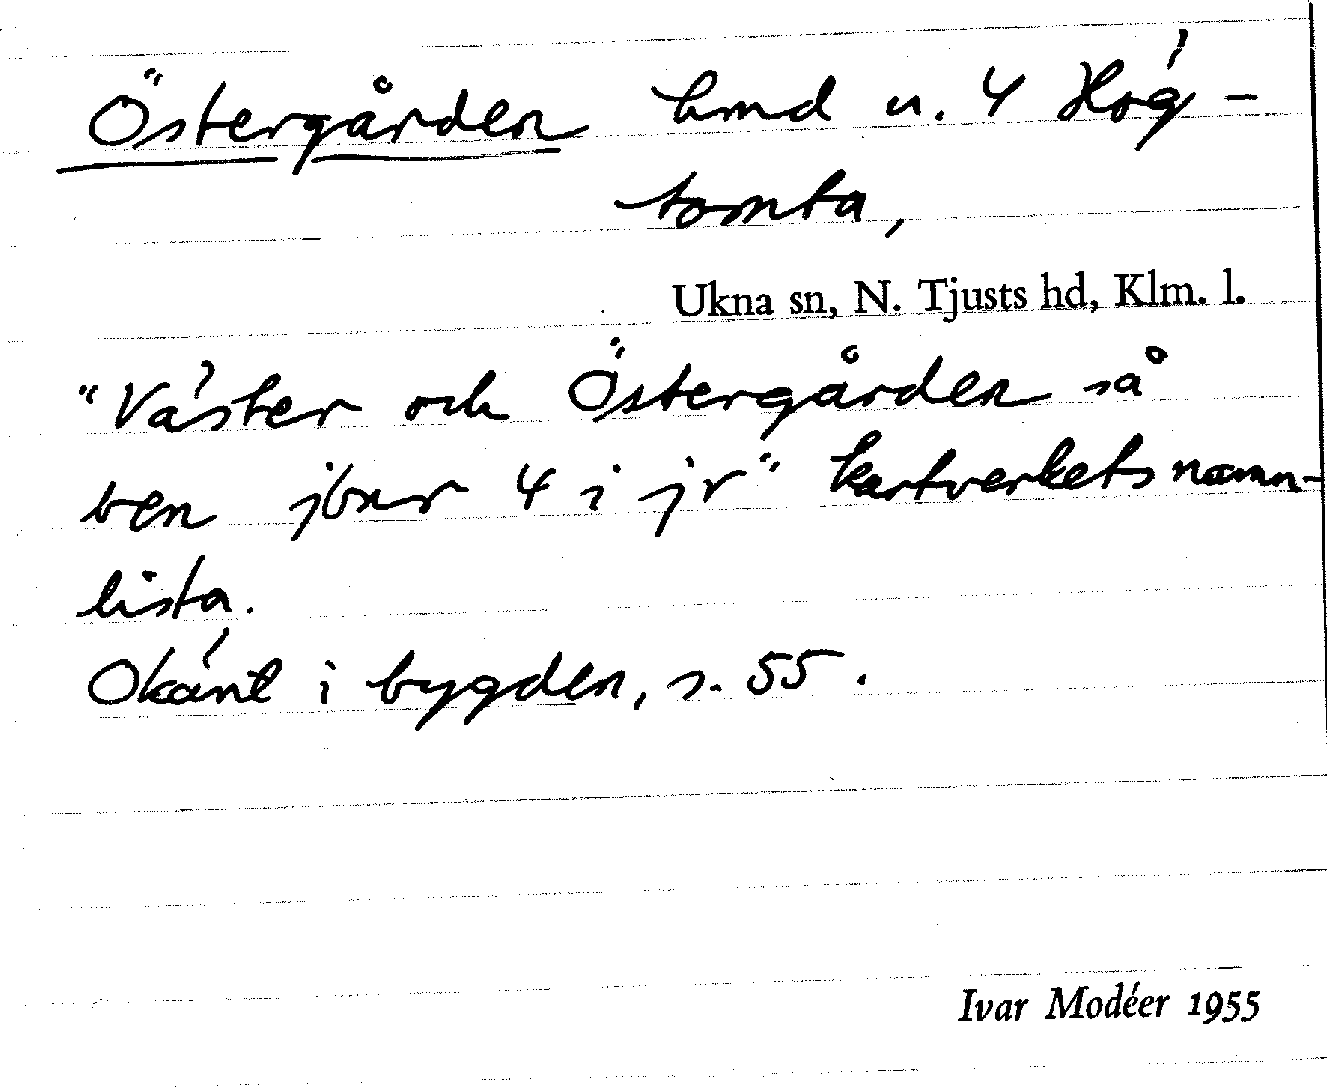 Östergården hmd u. 4 Hög-
tomta,
Ukna sn, N. Tjusts hd, Klm. l.
"Väster och Östergården så
ben jbnr 4 i jr" kartverkets namn-
lista.
Okänt i bygden, s. 55.
Ivar Modéer 1955